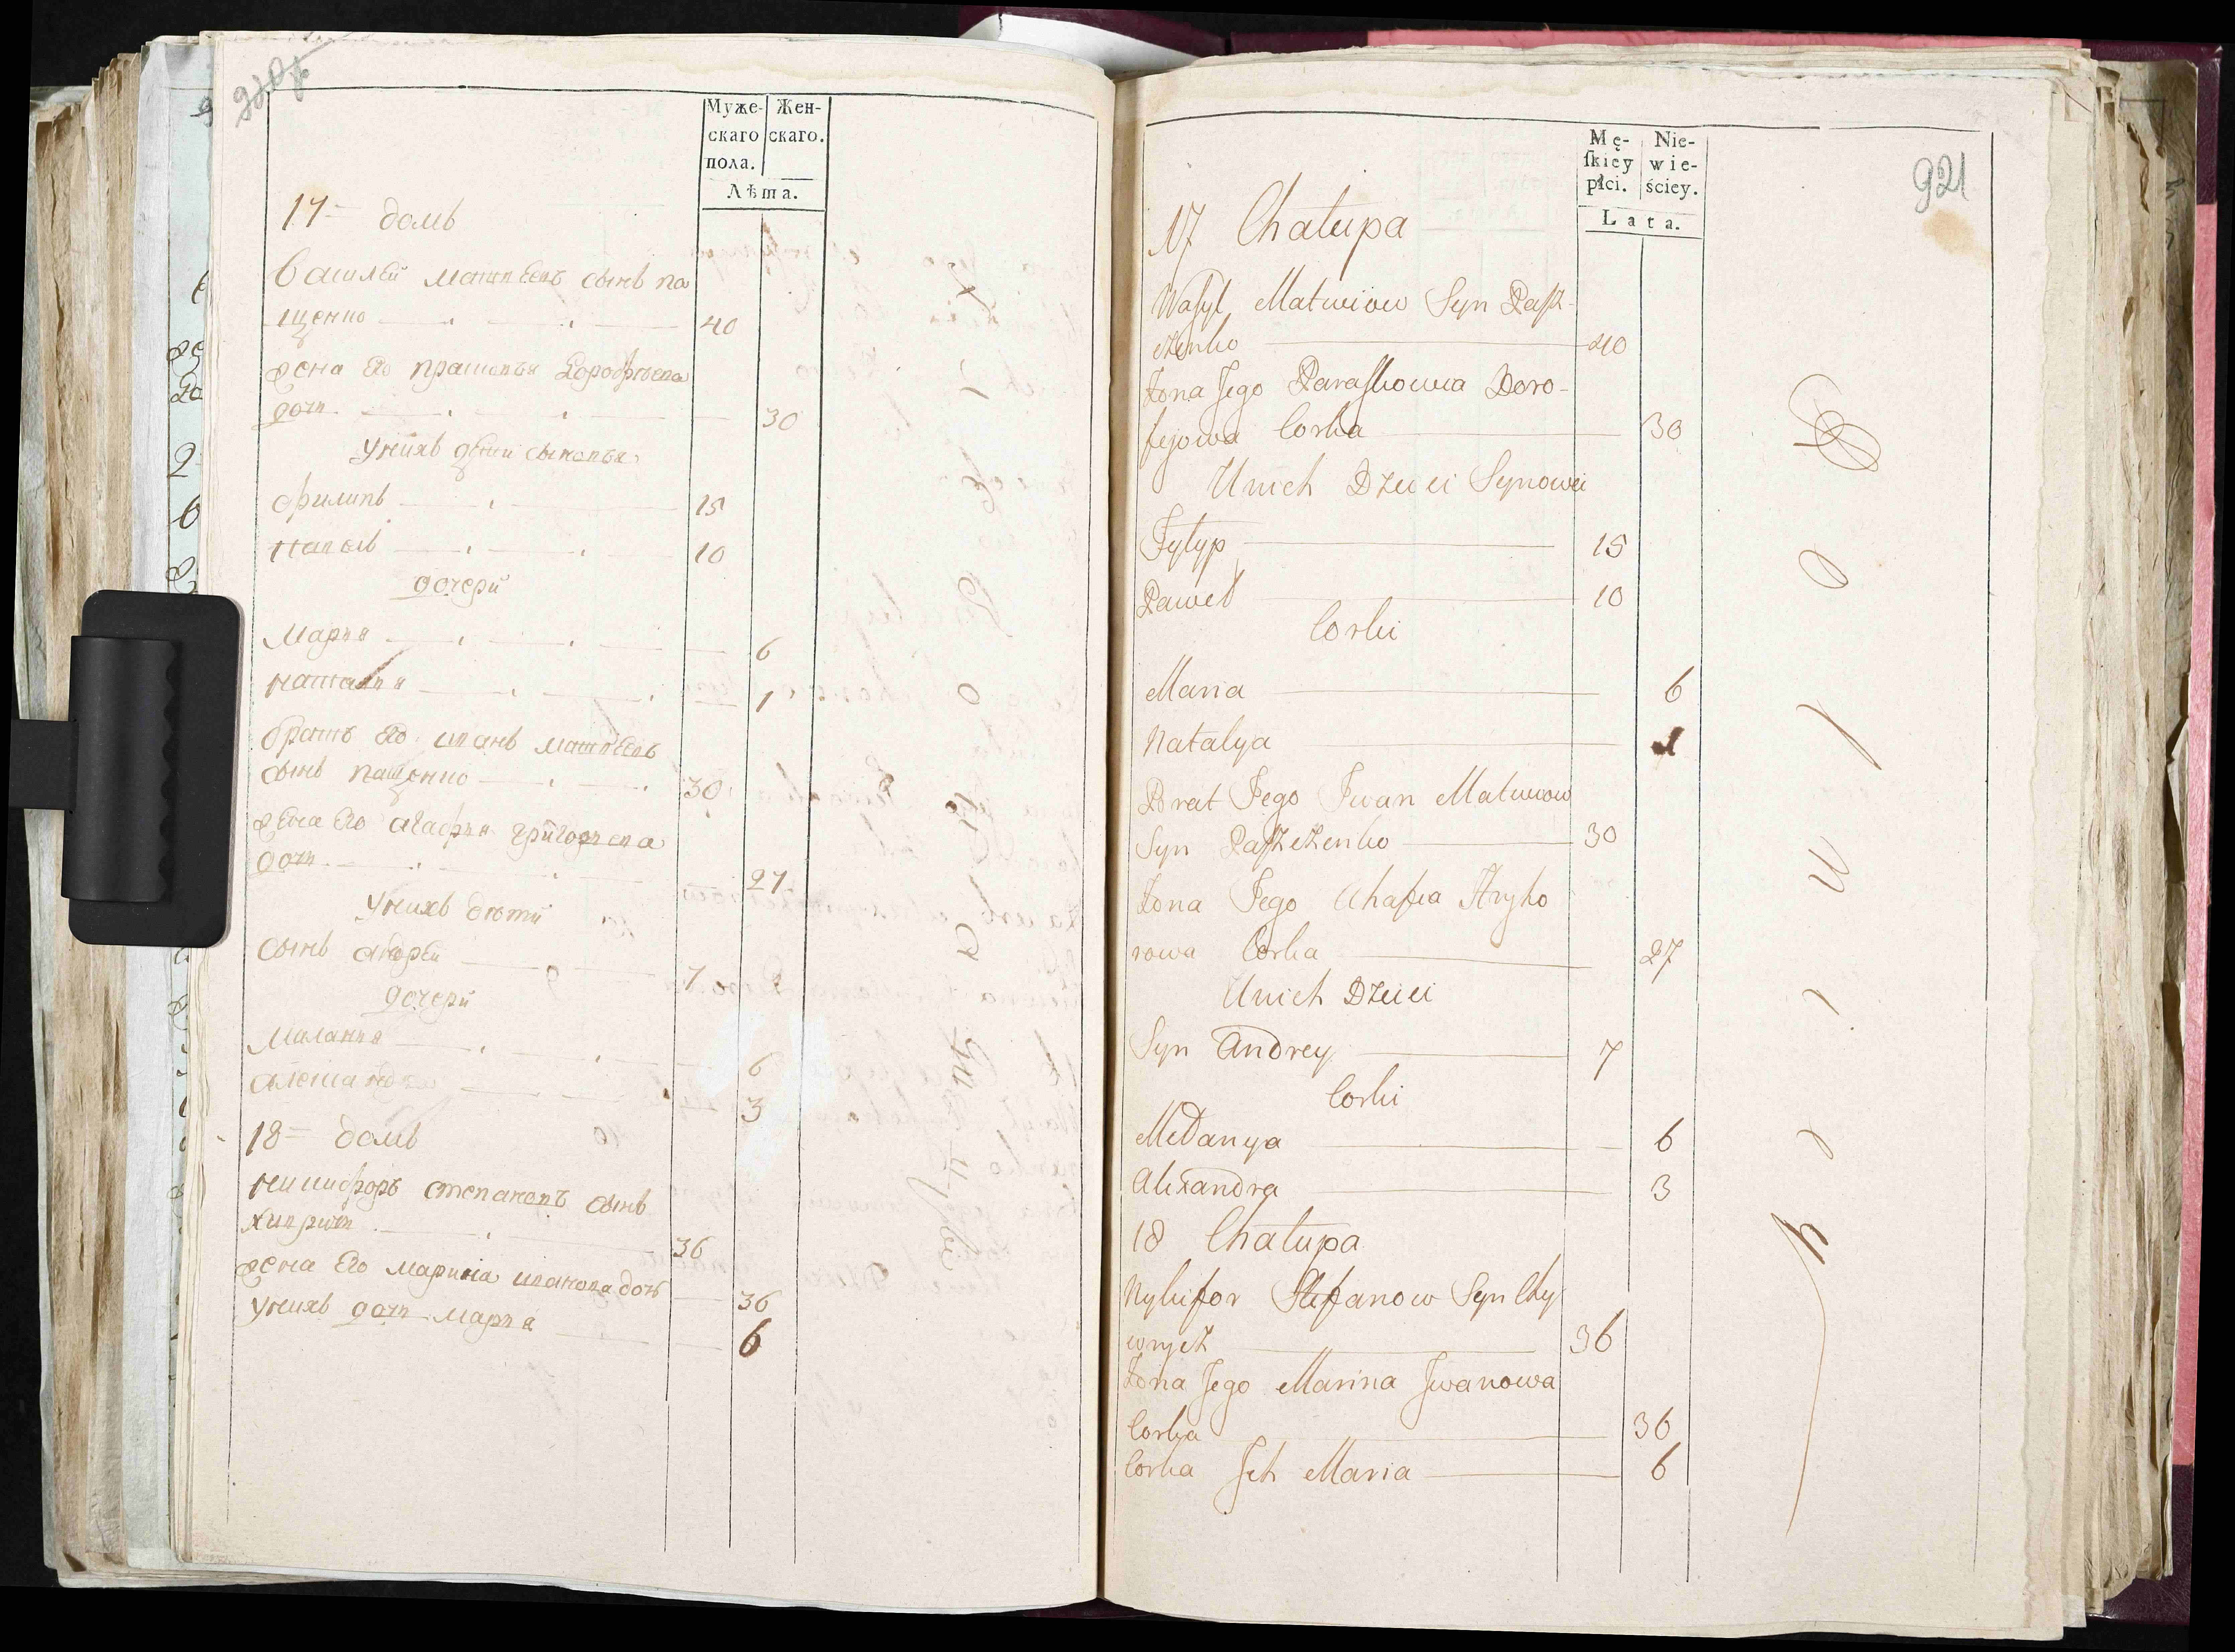 Муже- Жен-
скаго скаго.
пола.
Лѣта.
17= домъ
Василей матвѣевъ сынъ па
щенко 40
жена его прасковья дорофѣева
дочь 30
у нихъ дети сыновья
филипъ 15
павелъ 10
дочери
Мария 6
наталия 1
братъ его иванъ матвѣевъ
сынъ пащенко 30
жена его агафия григориева
дочь 27
у нихъ дѣти
сынъ андрей 7
дочери
Малания 6
александра 3
18= домъ
никифоръ степановъ сынъ
хивричь 36
жена его марина иванова дочь 36
у нихъ дочь мария 6
921
Mę- Nie-
ſkiey wie-
płci. ściey.
Lata.
17 Chałupa
Waſyl Matwiow Syn Paſz-
czenko 40
Żona Jego Paraſkowia Doro-
fejowa Corka 30
U nich Dzieci Synowei
Fyłyp 15
Paweł 10
Corki
Maria 6
Natalya 1
Brat Jego Iwan Matwiow
Syn Paſzczenko 30
Żona Jego Ahafia Hryho
rowa Corka 27
U nich Dzieci
Syn Andrey 7
Corki
Mełanya 6
Alexandra 3
18 Chałupa
Nykifor Stefanow Syn Chy
wrycz 36
Żona Jego Marina Jwanowa
Corka 36
Corka Jch Maria 6